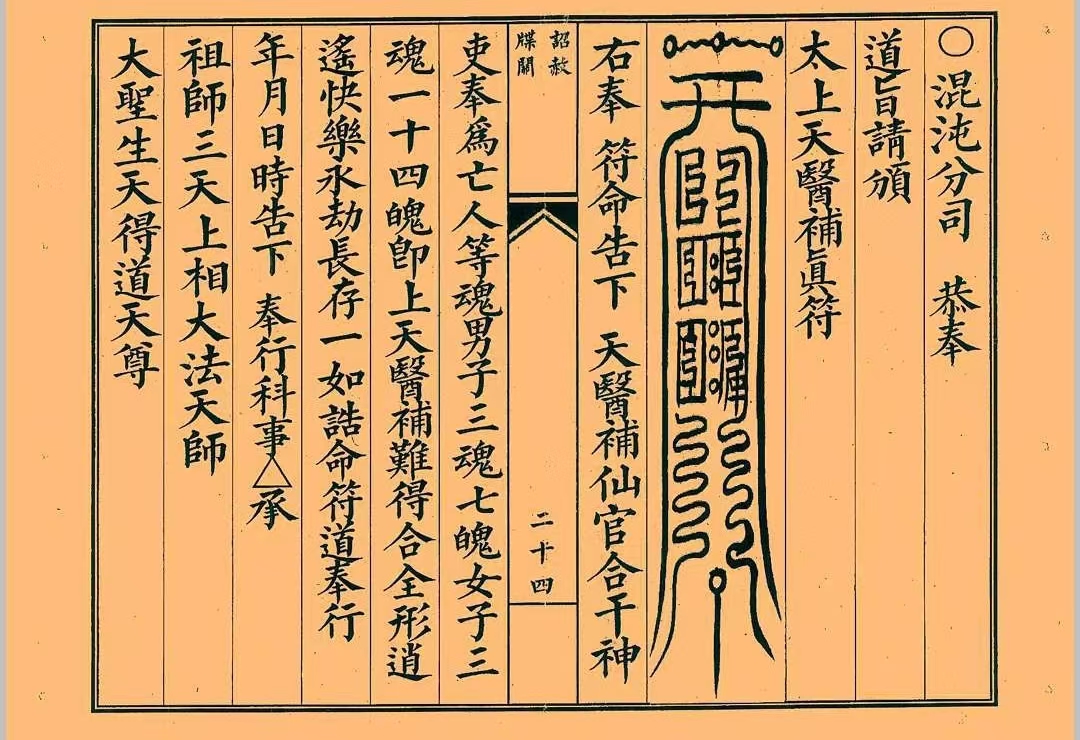 〇混沌分司 恭奉
道旨請頒
太上天醫補真符
右奉 符命告下 天醫補仙官合干神
詔赦
牒關
二十四
吏奉為亡人等魂男子三魂七魄女子三
魂一十四魄卽上天醫補難得合全形逍
遙快樂永劫長存一如誥命符道奉行
年月日時告下 奉行科事△承
祖師三天上相大法天師
大聖生天得道天尊